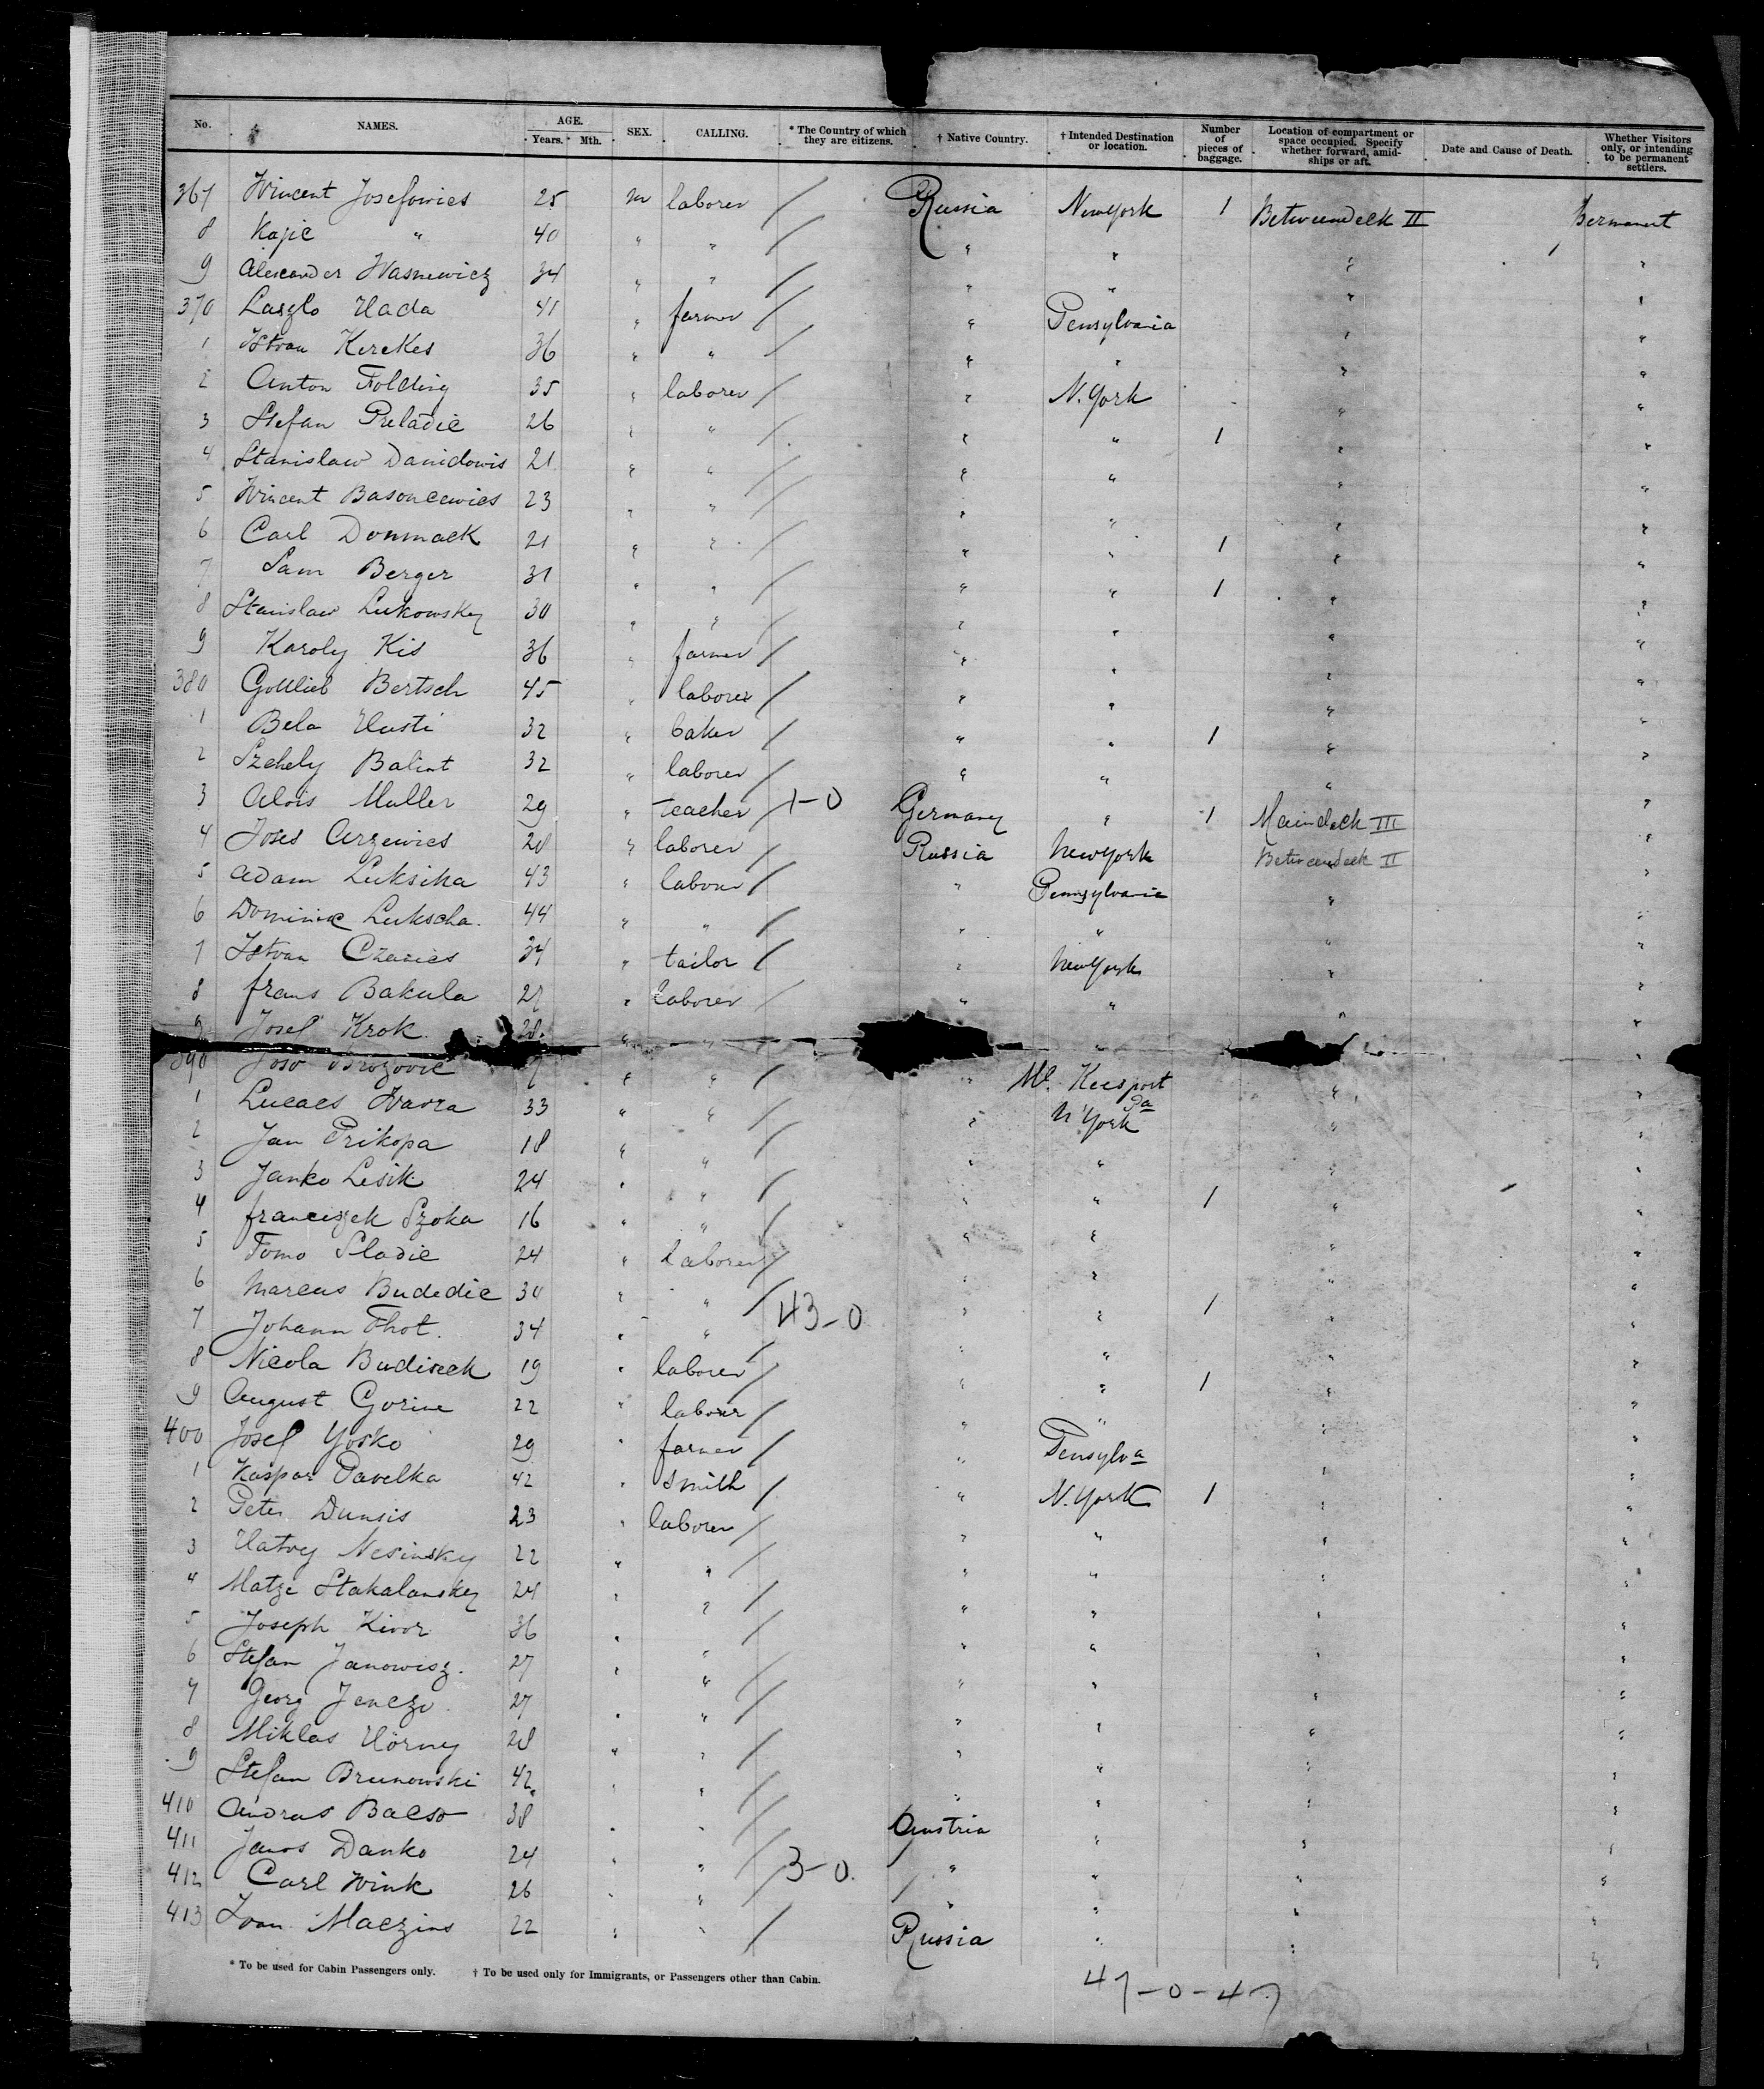 No. NAMES. AGE. Years. Mth. SEX. CALLING. * The Country of which they are citizens. † Native Country. † Intended Destination or location. Number of pieces of baggage. Location of compartment or space occupied. Specify whether forward, amidships or aft. Date and Cause of Death. Whether Visitors only, or intending to be permanent settlers.
367 Wincent Josefowics 25 m laborer / Russia NewYork 1 Betweendeck II Permanent
8 Kajic " 40 " " / " " " "
9 Alexander Wasnewicz 34 " " / " " " "
370 Laszlo Hada 41 " farmer / " Pensylvania " "
1 Istvan Kerekes 36 " " / " " " "
2 Anton Folding 35 " laborer / " N. York " "
3 Stefan Preladic 26 " " / " " 1 " "
4 Stanislaw Danidowis 21 " " / " " " "
5 Wincent Basoncewics 23 " " / " " " "
6 Carl Donmack 21 " " / " " 1 " "
7 Sam Berger 31 " " / " " 1 " "
8 Stanislaw Lukowsky 30 " " / " " " "
9 Karoly Kis 36 " farmer / " " " "
380 Gottlieb Bertsch 45 " laborer / " " " "
1 Bela Husti 32 " baker / " " 1 " "
2 Szehely Balint 32 " laborer / " " " "
3 Alois Muller 29 " teacher / 1-0 Germany " 1 Maindeck III "
4 Joses Arzewics 28 " laborer / Russia NewYork Betweendeck II "
5 Adam Luksika 43 " labour / " Pennsylvania " "
6 Dominic Lukscha. 44 " " / " " " "
7 Istvan Czarics 34 " tailor / " NewYork " "
8 frans Bakula 27 " laborer / " " " "
9 Josef Krok. 28 " " " "
390 Joso Brozovic " " / " Mc. Keesport Pa " "
1 Lucacs Wavra 33 " " / " N York " "
2 Jan Prikopa 18 " " / " " " "
3 Janko Lesik 24 " " / " " 1 " "
4 franciszek Szoka 16 " " / " " " "
5 Tomo Sladic 24 " laborer / " " " "
6 Marcus Budedic 30 " " / 43-0 " " 1 " "
7 Johann Thot. 34 " " / " " " "
8 Nicola Budiseck 19 " laborer / " " 1 " "
9 August Gorine 22 " labour / " " " "
400 Josef Yosko 29 " farmer / " Pensylva " "
1 Kaspar Pavelka 42 " smith / " N. York 1 " "
2 Peter Dunsis 23 " laborer / " " " "
3 Hatvey Nesinsky 22 " " / " " " "
4 Matze Stakalansky 24 " " / " " " "
5 Joseph Kivor 36 " " / " " " "
6 Stefan Janowisz. 27 " " / " " " "
7 Georg Jenczo 27 " " / " " " "
8 Miklas Hörney 28 " " / " " " "
9 Stefan Brunowski 42 " " / " " " "
410 Andras Bacso 38 " " / Austria " " "
411 Janos Danko 24 " " / 3-0. " " " "
412 Carl Wink 26 " " / " " " "
413 Ivan Maczins 22 " " / Russia " " "
* To be used for Cabin Passengers only. † To be used only for Immigrants, or Passengers other than Cabin.
47-0-47